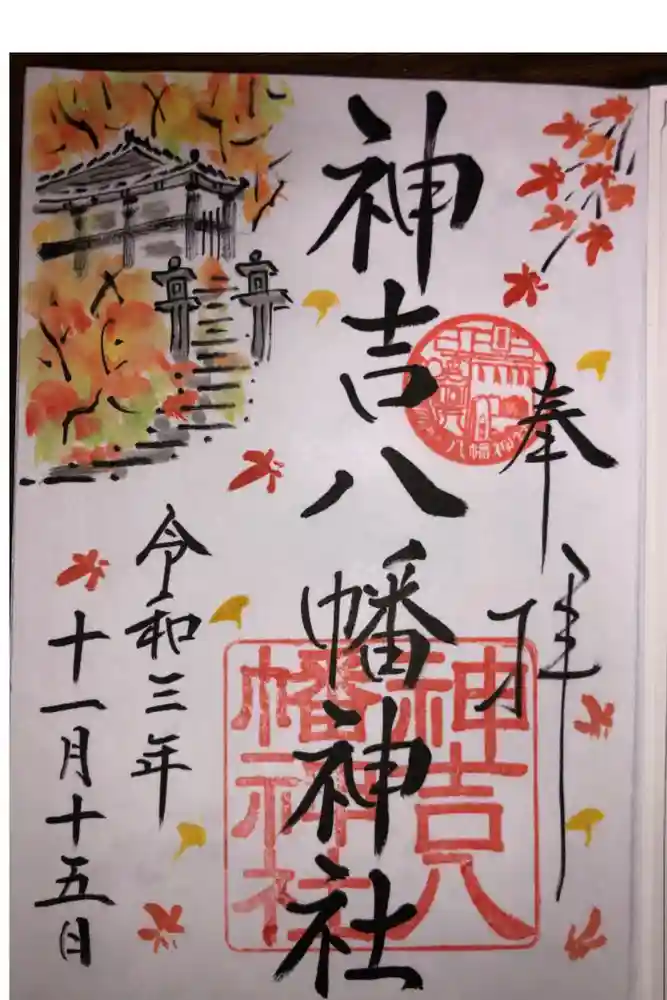 奉拝
神吉八幡神社
神吉八
幡神社
八幡神社
令和三年
十一月十五日